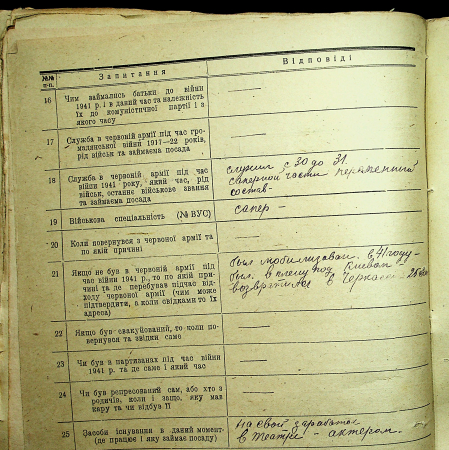 №№ п-п.
Запитання
Відповіді
16
Чим займались батьки до війни
1941 р. і в даний час та належність
їх до комуністичної партії і з
якого часу
17
Служба в червоній армії під час гро-
мадянської війни 1917—22 років,
рід військ та займаєма посада
18
Служба в червоній армії під час
війни 1941 року, який час, рід
військ, останнє військове звання
та займаєма посада
служил с 30 до 31.
саперной части переменный
состав-
19
Військова спеціальність (№ ВУС)
сапер —
20
Коли повернувся з червоної армії та
по якій причині
21
Якщо не був в червоній армії під
час війни 1941 р., то по якій при-
чині та де перебував підчас від-
ходу червоної армії (чим може
підтвердити, а коли свідками то їх
адреса)
был мобилизован. в 41 году-
был. в плену под Киевом
возвратился в Черкассы
22
Якщо був евакуйований, то коли по-
вернувся та звідки саме
23
Чи був в партизанах під час війни
1941 р. та де саме і який час
24
Чи був репресований сам, або хто з
родичів, коли і защо, яку мав
кару та чи відбув її
25
Засоби існування в даний момент
(де працює і яку займає посаду)
на свой заработок
в театре — актером.